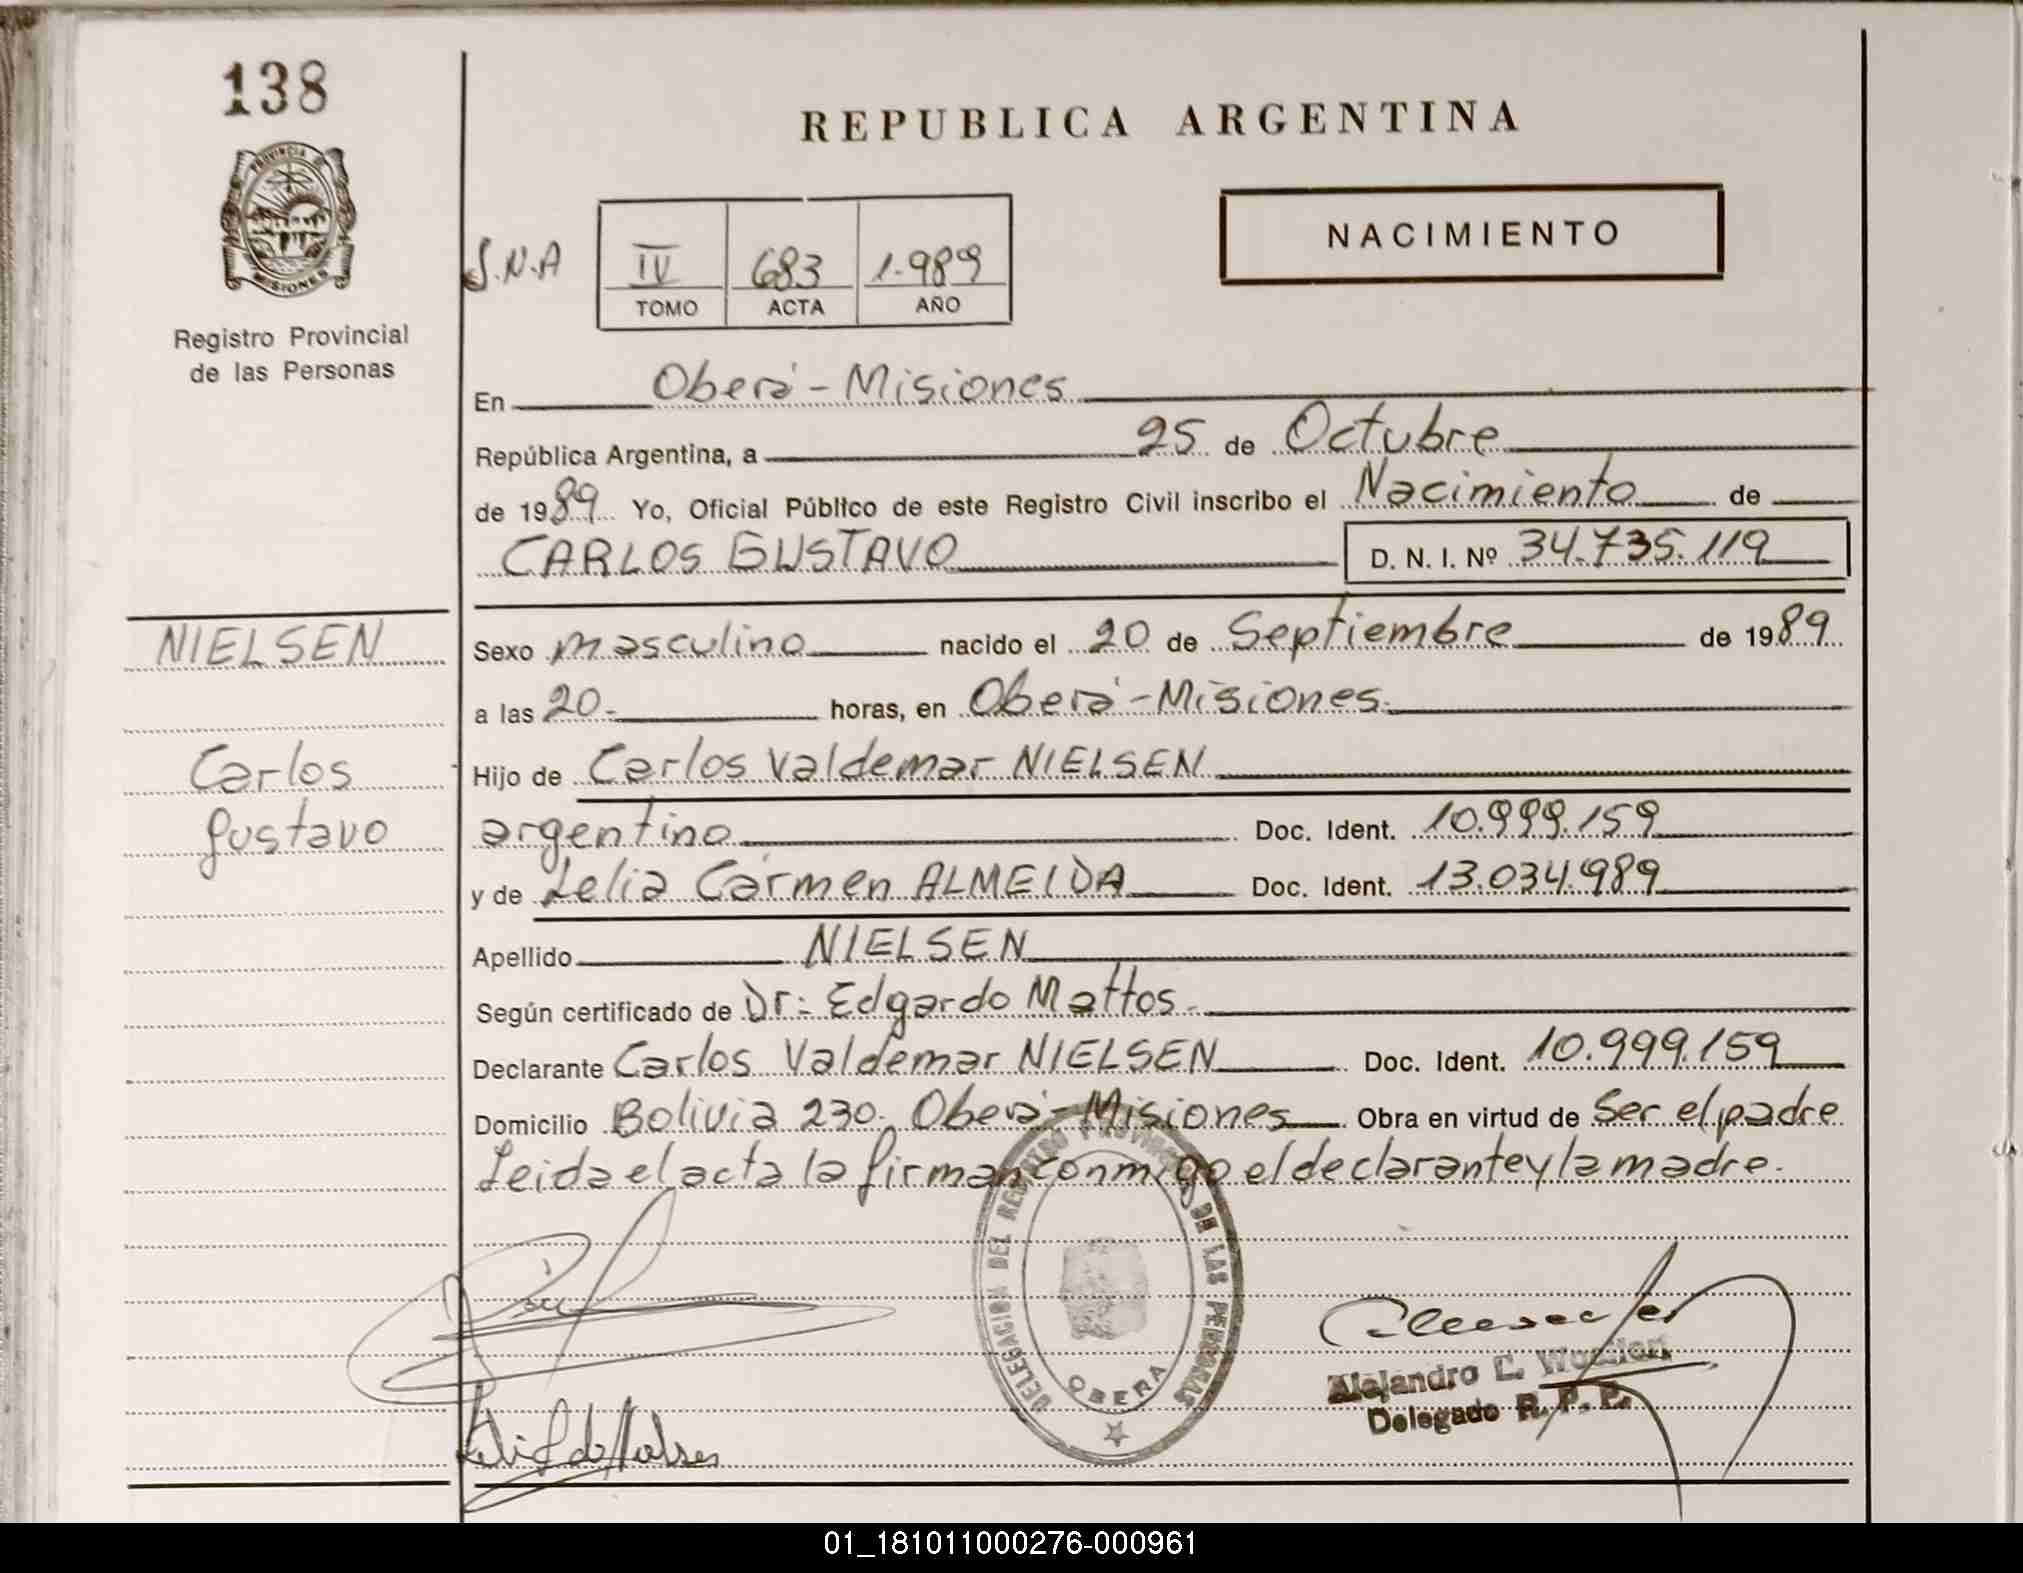 138
PROVINCIA D
MISIONES
Registro Provincial
de las Personas
NIELSEN
Carlos
Gustavo
REPUBLICA ARGENTINA
S.N.A
IV 683 1.989
TOMO ACTA AÑO
NACIMIENTO
En Oberá - Misiones
República Argentina, a 25 de Octubre
de 1989 Yo, Oficial Público de este Registro Civil inscribo el Nacimiento de
CARLOS GUSTAVO D. N. I. Nº 34.735.119
Sexo masculino nacido el 20 de Septiembre de 1989
a las 20- horas, en Oberá - Misiones.
Hijo de Carlos Valdemar NIELSEN
argentino Doc. Ident. 10.999.159
y de Lelia Carmen ALMEIDA Doc. Ident. 13.034.989
Apellido NIELSEN
Según certificado de Dr: Edgardo Mattos.
Declarante Carlos Valdemar NIELSEN Doc. Ident. 10.999.159
Domicilio Bolivia 230. Oberá - Misiones Obra en virtud de Ser el padre
Leida el acta la firman conmigo el declarante y la madre.
DELEGACION DEL REGISTRO PROVINCIAL DE LAS PERSONAS
OBERA
Alejandro E.
Delegado R. P. P.
01_181011000276-000961